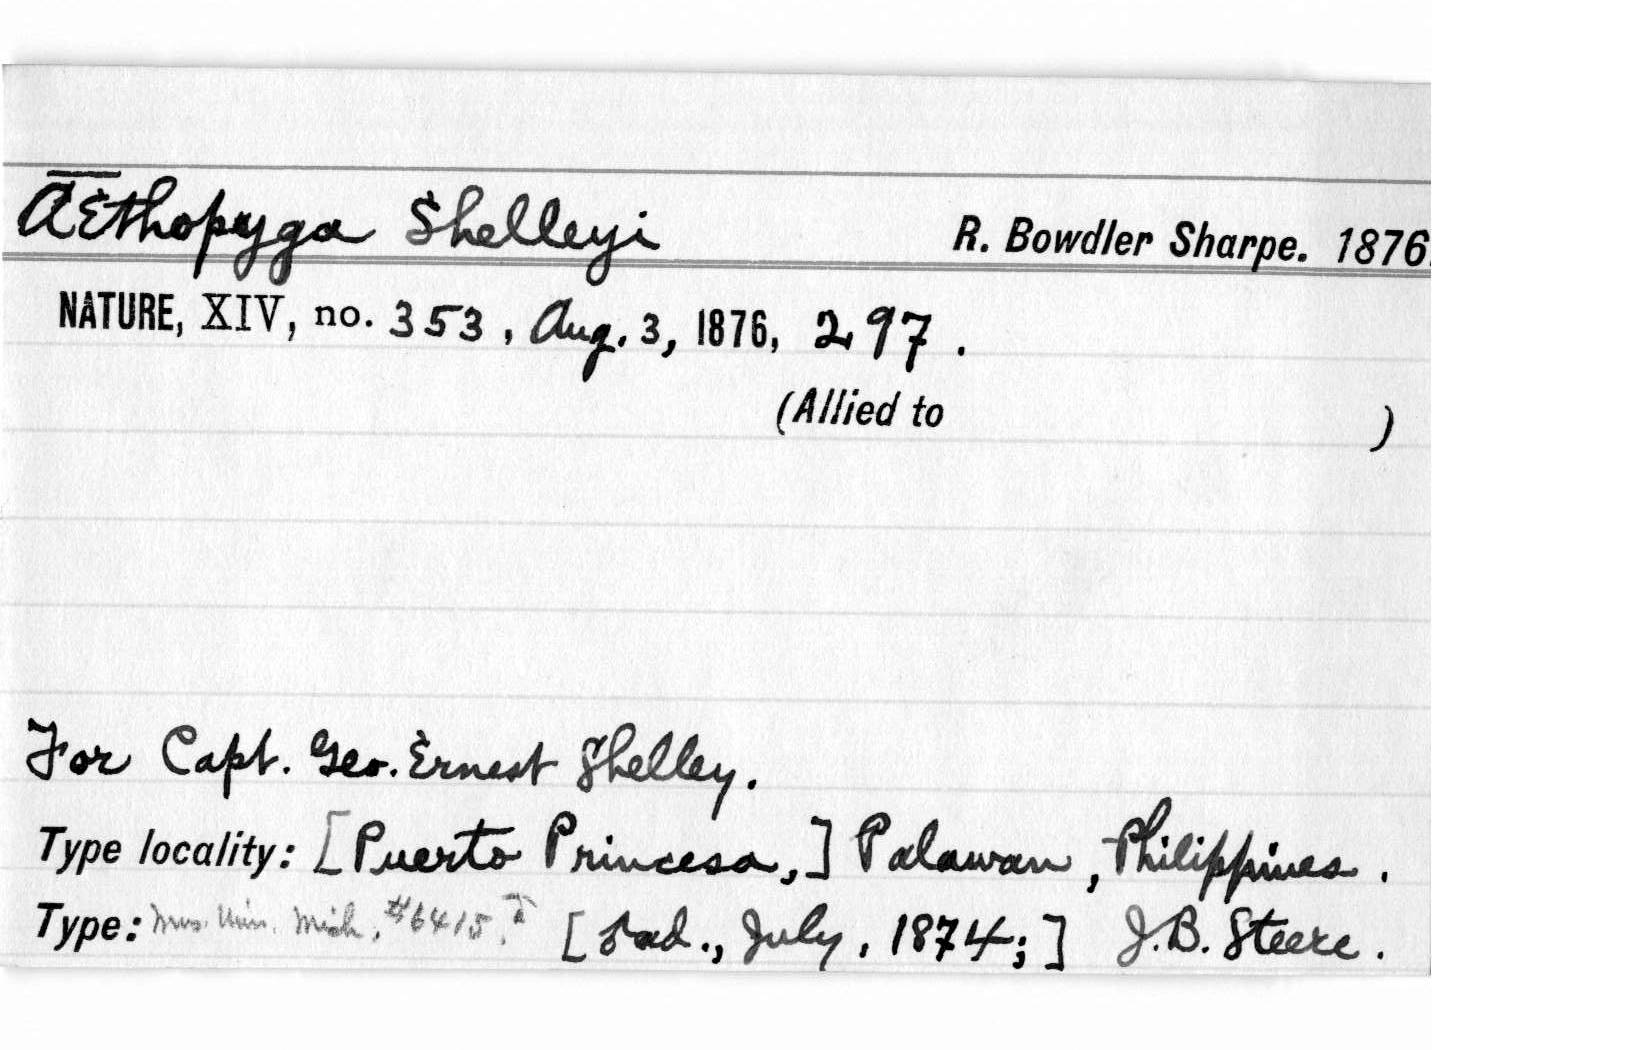 Æthopyga Shelleyi R. Bowdler Sharpe. 1876.
NATURE, XIV, no. 353, Aug. 3, 1876, 297.
(Allied to )
For Capt. Geo. Ernest Shelley.
Type locality: [Puerto Princesa,] Palawan, Philippines.
Type: Mus. Univ. Mich. #6415, [♂ad., July, 1874;] J.B. Steere.